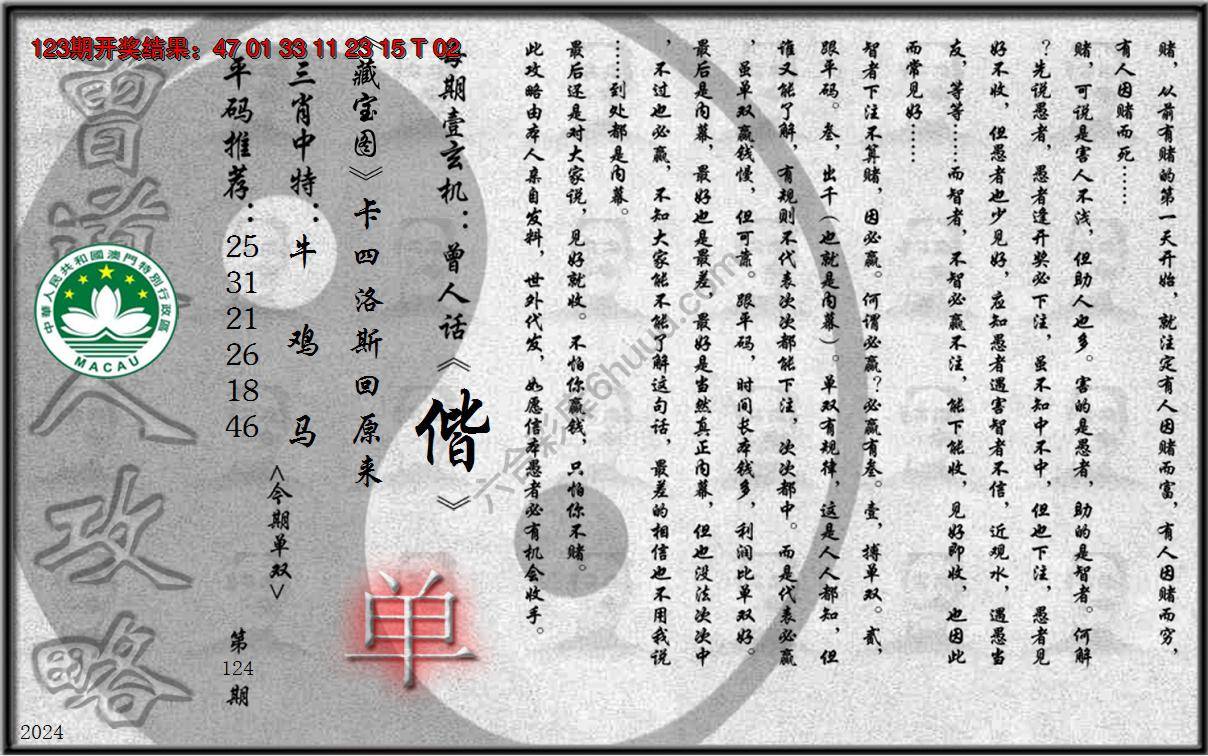 123期开奖结果：47 01 33 11 23 15 T 02
赌，从前有赌的第一天开始，就注定有人因赌而富，有人因赌而穷，
有人因赌而死……
赌，可说是害人不浅，但助人也多。害的是愚者，助的是智者。何解
？先说愚者，愚者逢开奖必下注，虽不知中不中，但也下注，愚者见
好不收，但愚者也少见好，应知愚者遇害智者不信，近观水，遇愚当
友，等等……而智者，不智必赢不注，能下能收，见好即收，也因此
而常见好……
智者下注不算赌，因必赢。何谓必赢？必赢有叁。壹，搏单双。贰，
跟平码。叁，出千（也就是内幕）。单双有规律，这是人人都知，但
谁又能了解，有规则不代表次次都能下注，次次都中。而是代表必赢
，虽单双赢钱慢，但可靠。跟平码，时间长本钱多，利润比单双好。
最后是内幕，最好也是最差，最好是当然真正内幕，但也没法次次中
，不过也必赢，不知大家能不能了解这句话，最差的相信也不用我说
……到处都是内幕。
最后还是对大家说，见好就收。不怕你赢钱，只怕你不赌。
此攻略由本人亲自发料，世外代发，如愿信本愚者必有机会收手。
每期壹玄机：曾人话《偕》
《藏宝图》卡四洛斯回原来
三肖中特：牛 鸡 马
<今期单双>
单
平码推荐：
25
31
21
26
18
46
第
124
期
曾道人攻略
中華人民共和國澳門特別行政區
MACAU
2024